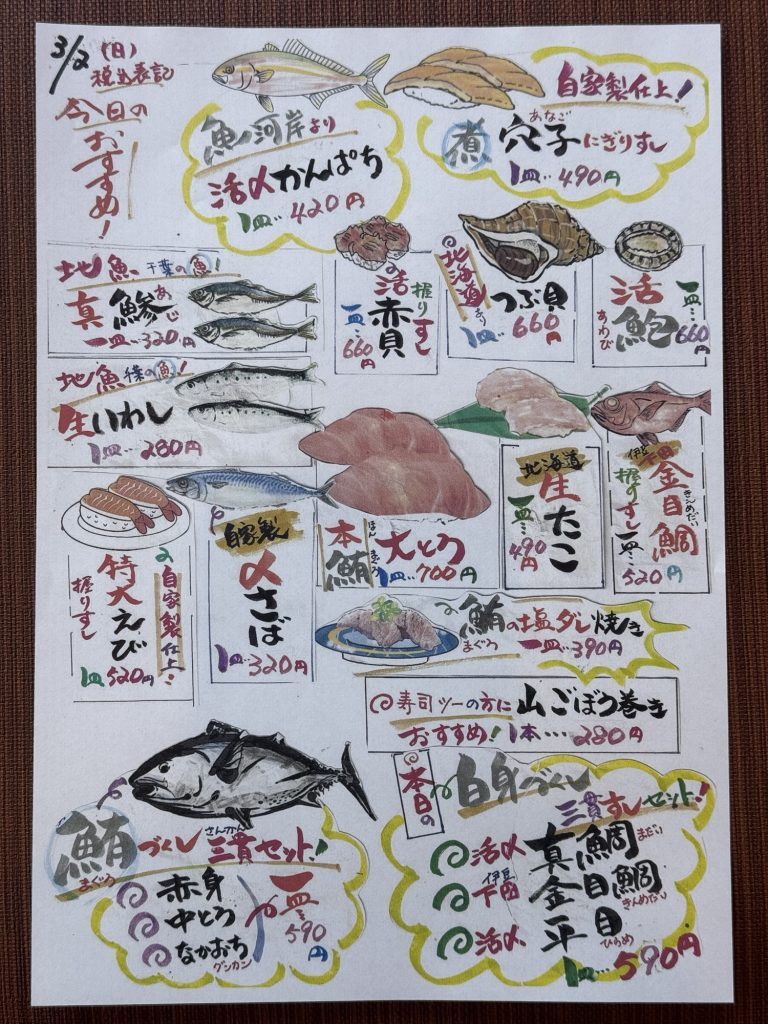 3/2 (日)
税込表記
今日の
おすすめ!
魚河岸より
活〆かんぱち
1皿…420円
自家製仕上!
あなご
煮 穴子にぎりすし
1皿…490円
地魚 千葉の魚!
真鯵 あじ
一皿…320円
活赤貝
握りすし
一皿…660円
北海道より
つぶ貝
1皿…660円
活鮑
あわび
一皿…660円
地魚 千葉の魚!
生いわし
1皿…280円
自家製仕上!
特大えび
握りすし
1皿520円
自家製
〆さば
1皿…320円
本鮪 ほんまぐろ
大とろ
1皿…700円
北海道
生たこ
一皿…490円
伊豆
下田
金目鯛 きんめだい
握りすし
一皿…520円
鮪の塩ダレ焼き
まぐろ
一皿…390円
寿司ツーの方に 山ごぼう巻き
おすすめ! 1本…280円
鮪づくし 三貫セット!
まぐろ さんかん
赤身
中とろ
なかおち
グンカン
一皿…590円
本日の
白身づくし
三貫すしセット!
活〆 真鯛 まだい
伊豆
下田 金目鯛 きんめだい
活〆 平目 ひらめ
1皿…590円